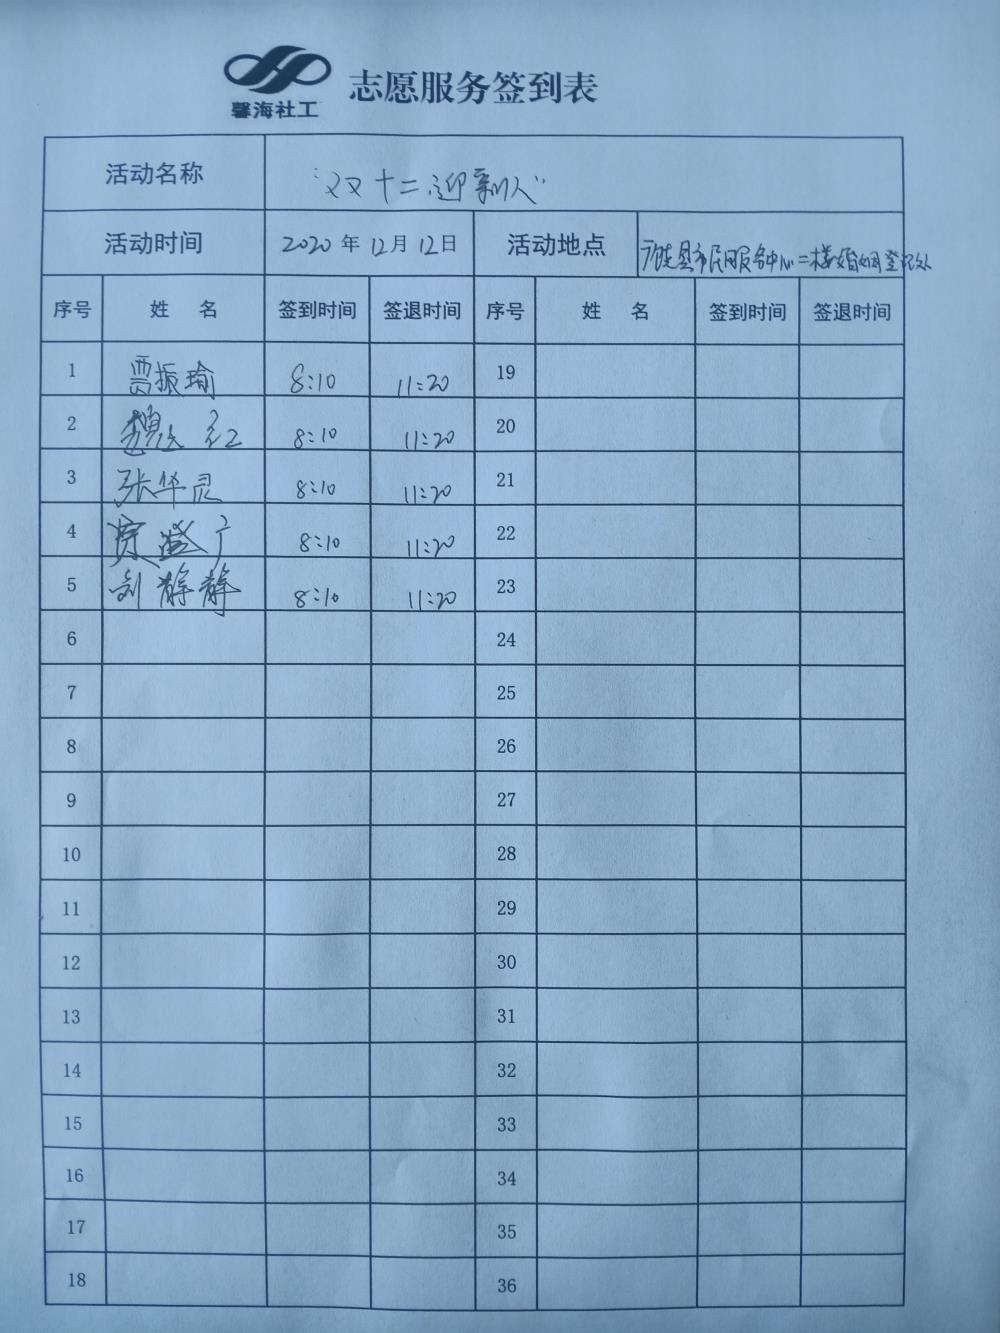 馨海社工
志愿服务签到表
活动名称 “双十二迎新人”
活动时间 2020年12月12日 活动地点 广饶县市民服务中心二楼婚姻登记处
序号 姓名 签到时间 签退时间 序号 姓名 签到时间 签退时间
1 贾振瑜 8:10 11:20 19
2 魏红 8:10 11:20 20
3 张华灵 8:10 11:20 21
4 8:10 11:20 22
5 刘静静 8:10 11:20 23
6 24
7 25
8 26
9 27
10 28
11 29
12 30
13 31
14 32
15 33
16 34
17 35
18 36